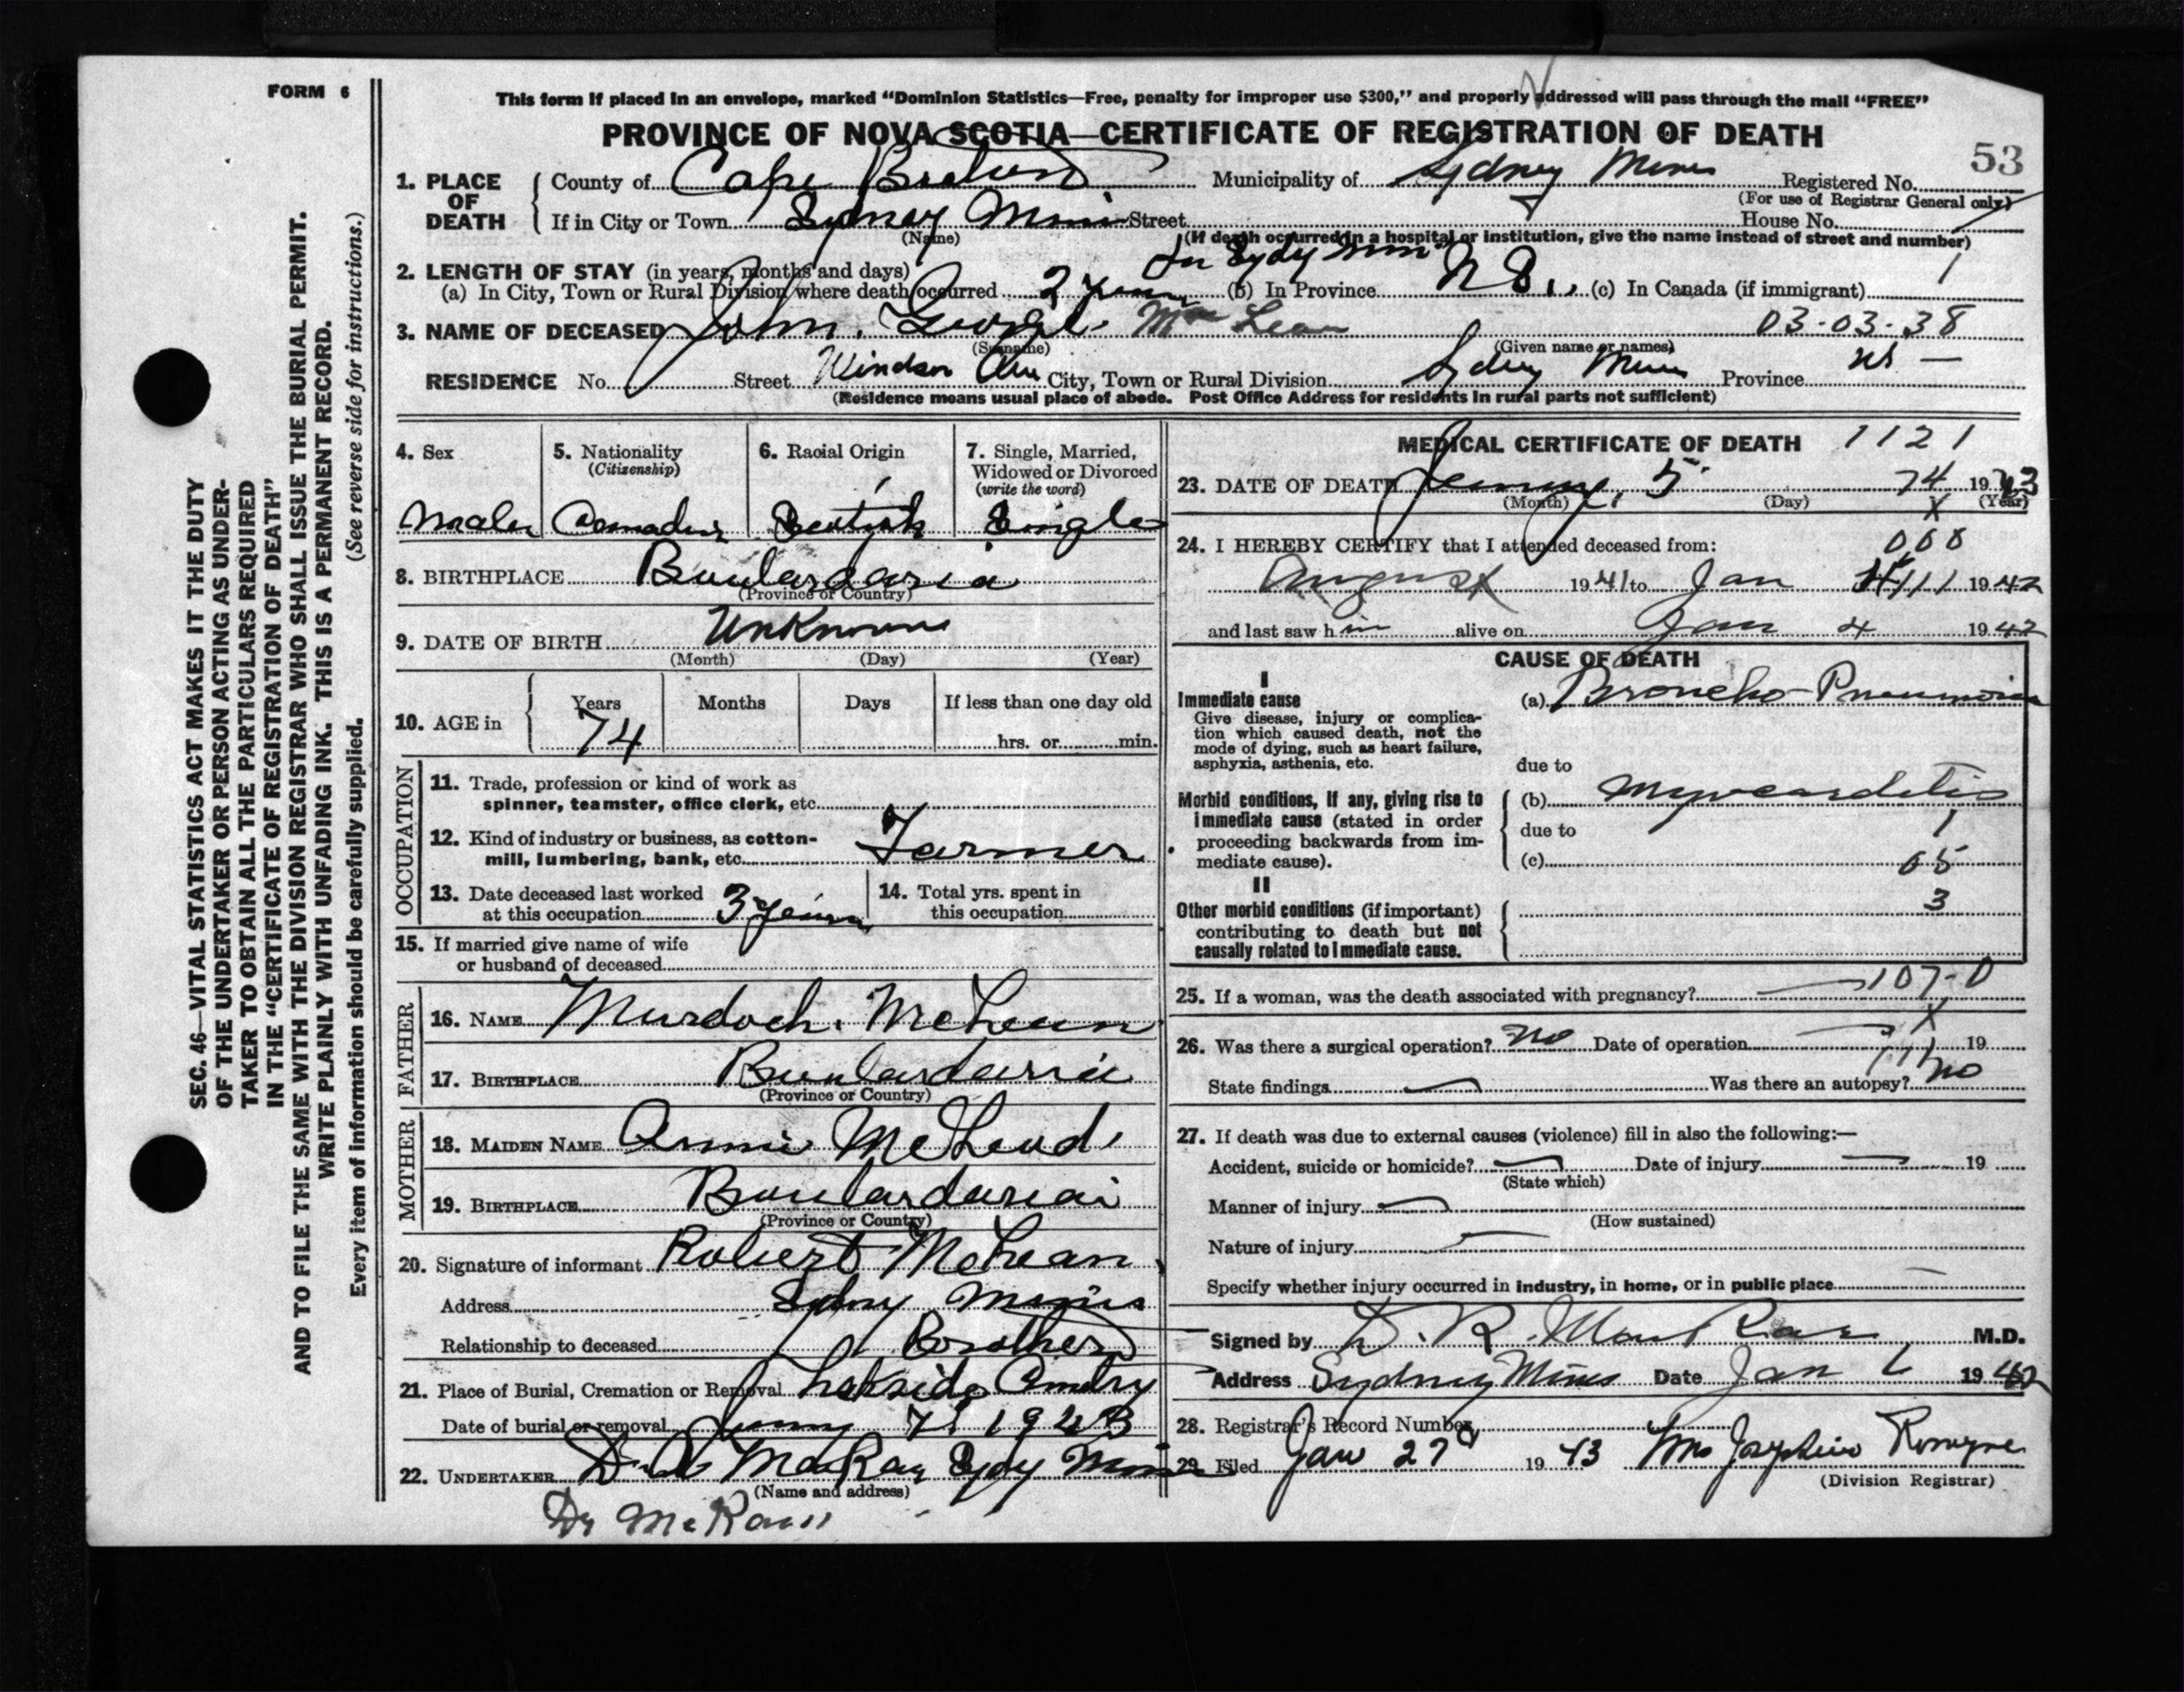 FORM 6
This form if placed in an envelope, marked “Dominion Statistics—Free, penalty for improper use $300,” and properly addressed will pass through the mail “FREE”
PROVINCE OF NOVA SCOTIA—CERTIFICATE OF REGISTRATION OF DEATH
53
1. PLACE OF DEATH
County of Cape Breton Municipality of Sydney Mines Registered No.
(For use of Registrar General only)
If in City or Town Sydney Mines Street House No.
(Name) (If death occurred in a hospital or institution, give the name instead of street and number)
2. LENGTH OF STAY (in years, months and days) In Sydy Mines 1
(a) In City, Town or Rural Division where death occurred 2 years (b) In Province N S (c) In Canada (if immigrant)
3. NAME OF DECEASED John George MacLean 03-03-38
(Surname) (Given name or names)
RESIDENCE No. Street Windsor Ave City, Town or Rural Division Sydney Mines Province NS —
(Residence means usual place of abode. Post Office Address for residents in rural parts not sufficient)
4. Sex 5. Nationality 6. Racial Origin 7. Single, Married,
(Citizenship) Widowed or Divorced
(write the word)
Male Canadian Scotish Single
8. BIRTHPLACE Boulardaria
(Province or Country)
9. DATE OF BIRTH Unknown
(Month) (Day) (Year)
10. AGE in Years Months Days If less than one day old
74 hrs. or min.
OCCUPATION
11. Trade, profession or kind of work as
spinner, teamster, office clerk, etc.
12. Kind of industry or business, as cotton-
mill, lumbering, bank, etc. Farmer
13. Date deceased last worked
at this occupation 3 years
14. Total yrs. spent in
this occupation
15. If married give name of wife
or husband of deceased
FATHER
16. NAME Murdoch McLean
17. BIRTHPLACE Boulardarie
(Province or Country)
MOTHER
18. MAIDEN NAME Annie McLeod
19. BIRTHPLACE Boulardariai
(Province or Country)
20. Signature of informant Robert McLean
Address Sydney Mines
Relationship to deceased Brother
21. Place of Burial, Cremation or Removal Lakside
Date of burial or removal 7 1943
22. UNDERTAKER MacRae Sydy Mines
(Name and address)
Dr
MEDICAL CERTIFICATE OF DEATH 1121
23. DATE OF DEATH January 5 74 1943
(Month) (Day) (Year)
X
24. I HEREBY CERTIFY that I attended deceased from: 068
August 1941 to Jan 1942
and last saw him alive on Jan 4 1942
CAUSE OF DEATH
I
Immediate cause (a) Broncho-Pneumonia
Give disease, injury or complica-
tion which caused death, not the
mode of dying, such as heart failure,
asphyxia, asthenia, etc.
due to
Morbid conditions, if any, giving rise to
immediate cause (stated in order
proceeding backwards from im-
mediate cause).
(b) Myocarditis
due to 1
(c) 05
II
Other morbid conditions (if important)
contributing to death but not
causally related to immediate cause.
3
25. If a woman, was the death associated with pregnancy? — 107-0
X
26. Was there a surgical operation? No Date of operation — 19
State findings — Was there an autopsy? no
27. If death was due to external causes (violence) fill in also the following:—
Accident, suicide or homicide? — Date of injury — 19
(State which)
Manner of injury —
(How sustained)
Nature of injury —
Specify whether injury occurred in industry, in home, or in public place —
Signed by D. R. MacRae M.D.
Address Sydney Mines Date Jan 6 1942
28. Registrar's Record Number
29. Filed Jan 27 1943 Mrs Josephine
(Division Registrar)
SEC. 46—VITAL STATISTICS ACT MAKES IT THE DUTY
OF THE UNDERTAKER OR PERSON ACTING AS UNDER-
TAKER TO OBTAIN ALL THE PARTICULARS REQUIRED
IN THE “CERTIFICATE OF REGISTRATION OF DEATH”
AND TO FILE THE SAME WITH THE DIVISION REGISTRAR WHO SHALL ISSUE THE BURIAL PERMIT.
WRITE PLAINLY WITH UNFADING INK. THIS IS A PERMANENT RECORD.
Every item of information should be carefully supplied. (See reverse side for instructions.)